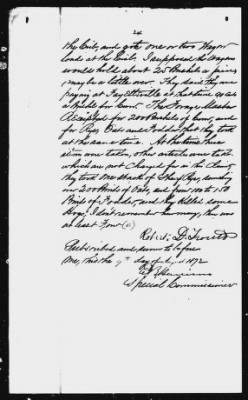 24
the Crib, and got one or two Wagon
loads at the Crib. I supposed the Wagons
would hold about 25 Bushels a piece,
may be a little over. They said they
paying at Fayetteville at that time
a Bushel for Corn. The Forage Master
Receipted for 200 Bushels of Corn, and
for Rye, Oats and Fodder that they took
at the same time. At the time these
items were taken, other articles were taken
which are not Charged for in the claim,
they took one stack of Sheaf Rye,
200 Binds of Oats, and from 100 to 150
Binds of Fodder, and they killed some
Hogs, I don't remember how many, there was
at least Four (4)
Robt. D.
Subscribed and sworn to before
me, this the 9th day of 1872
Special Commissioner